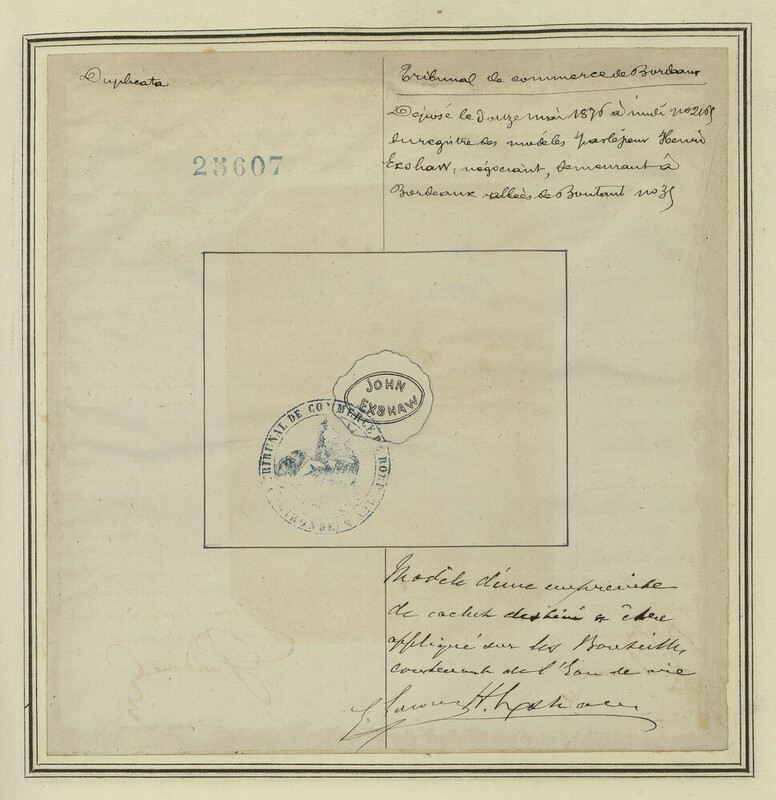 Duplicata
Tribunal de commerce de Bordeaux
Déposé le douze mai 1876 à midi no 2165
du registre des modèles par le sieur Henri
Exshaw, négociant, demeurant à
Bordeaux allées de Boutaut no 35
25607
JOHN
EXSHAW
TRIBUNAL DE COMMERCE DE BORD
GIRONDE
Modèle d'une empreinte
de cachet destiné à être
appliqué sur les Bouteilles
contenant de l'Eau de vie
H. Exshaw